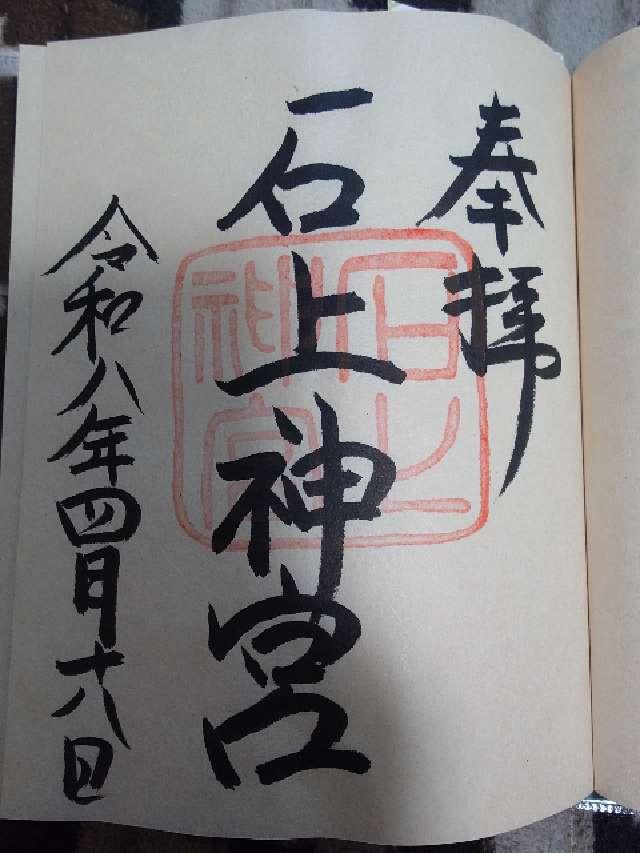 奉拝
石上神宮
石上神宮
令和八年四月十八日